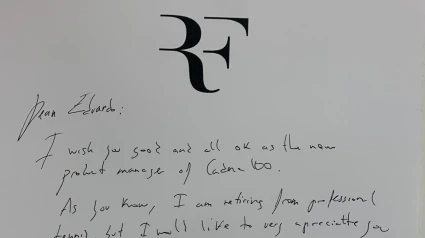 RF
Dear Eduardo:
I wish you good and all ok as the new
product manager of Cadena 100.
As you know, I am retiring from professional
tennis but I would like to very apreciatte you